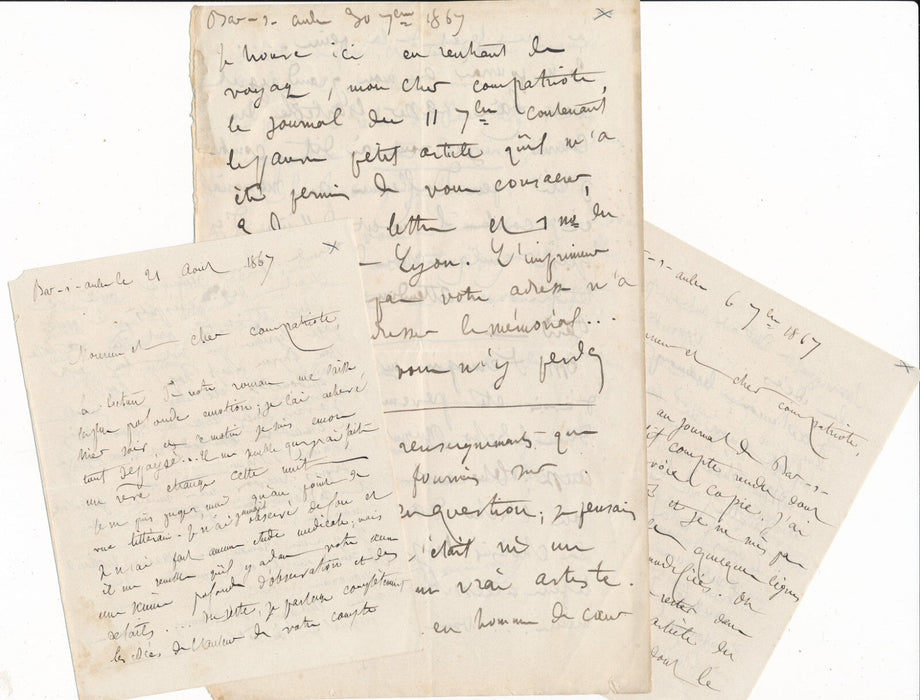 Bar-s-aube 30 7bre 1867
Je trouve ici en rentrant de
voyage, mon cher compatriote,
le journal du 11 7bre contenant
le pauvre petit article qu'il m'a
été permis de vous consacrer,
lettre et 1 no du
Lyon. L'imprimeur
pas votre adresse n'a
adresser le mémorial...
vous n'y perdez
renseignements que
fournis sur
en question; je pensais
c'était ni un
un vrai artiste.
en homme de cœur
Bar-s-aube le 21 Aout 1867
Monsieur et cher compatriote,
la lecture de votre roman me laisse
une plus profonde émotion; je l'ai achevé
hier soir, et ce matin je suis encore
tout dépaysé... Il me semble que j'ai fait
un rêve étrange cette nuit
Je ne puis juger, moi qu'au point de
vue littéraire. Je n'ai jamais observé de fou et
je n'ai fait aucune étude médicale; mais
il me semble qu'il y a dans votre œuvre
une science profonde d'observation et des
détails.... Du reste, je partage complètement
les idées de l'auteur de votre compte
Bar-s-aube 6 7bre 1867
Monsieur et cher compatriote,
au journal de Bar-s-
compte rendu dont
copie. J'ai
et je ne mis pas
quelques lignes
modifiées. On
rester dans
article du
dont le